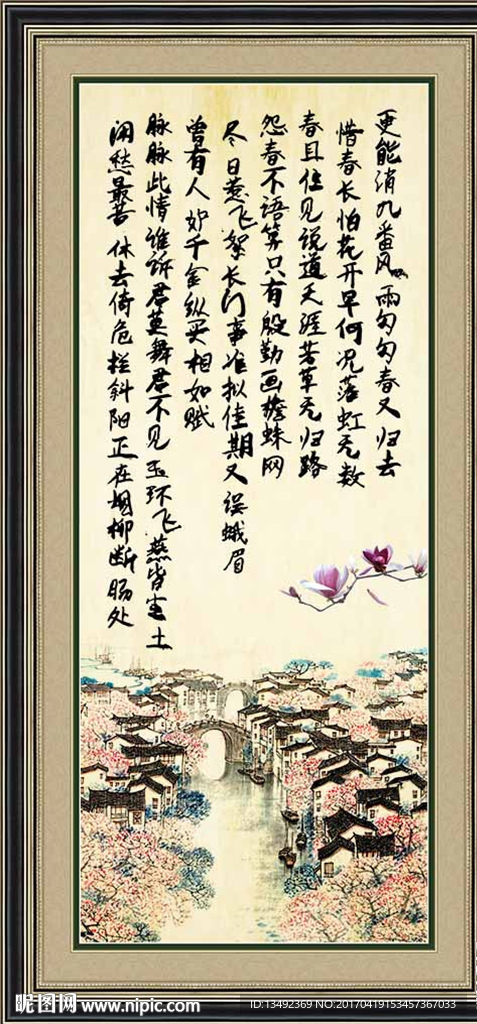 更能消九番风雨匆匆春又归去
惜春长怕花开早何况落虹无数
春且住见说道天涯芳草无归路
怨春不语算只有殷勤画檐蛛网
尽日惹飞絮长门事准拟佳期又误蛾眉
曾有人妒千金纵买相如赋
脉脉此情谁诉君莫舞君不见玉环飞燕皆尘土
闲愁最苦休去倚危栏斜阳正在烟柳断肠处
昵图网 www.nipic.com
ID:13492369 NO:20170419153457367033